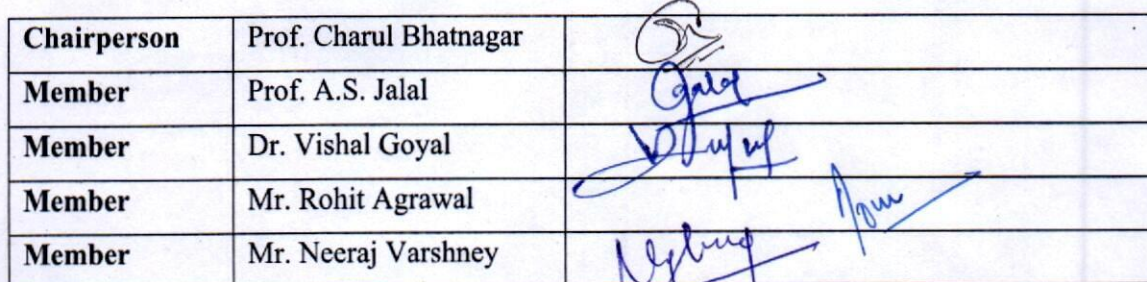 Chairperson Prof. Charul Bhatnagar
Member Prof. A.S. Jalal
Member Dr. Vishal Goyal
Member Mr. Rohit Agrawal
Member Mr. Neeraj Varshney